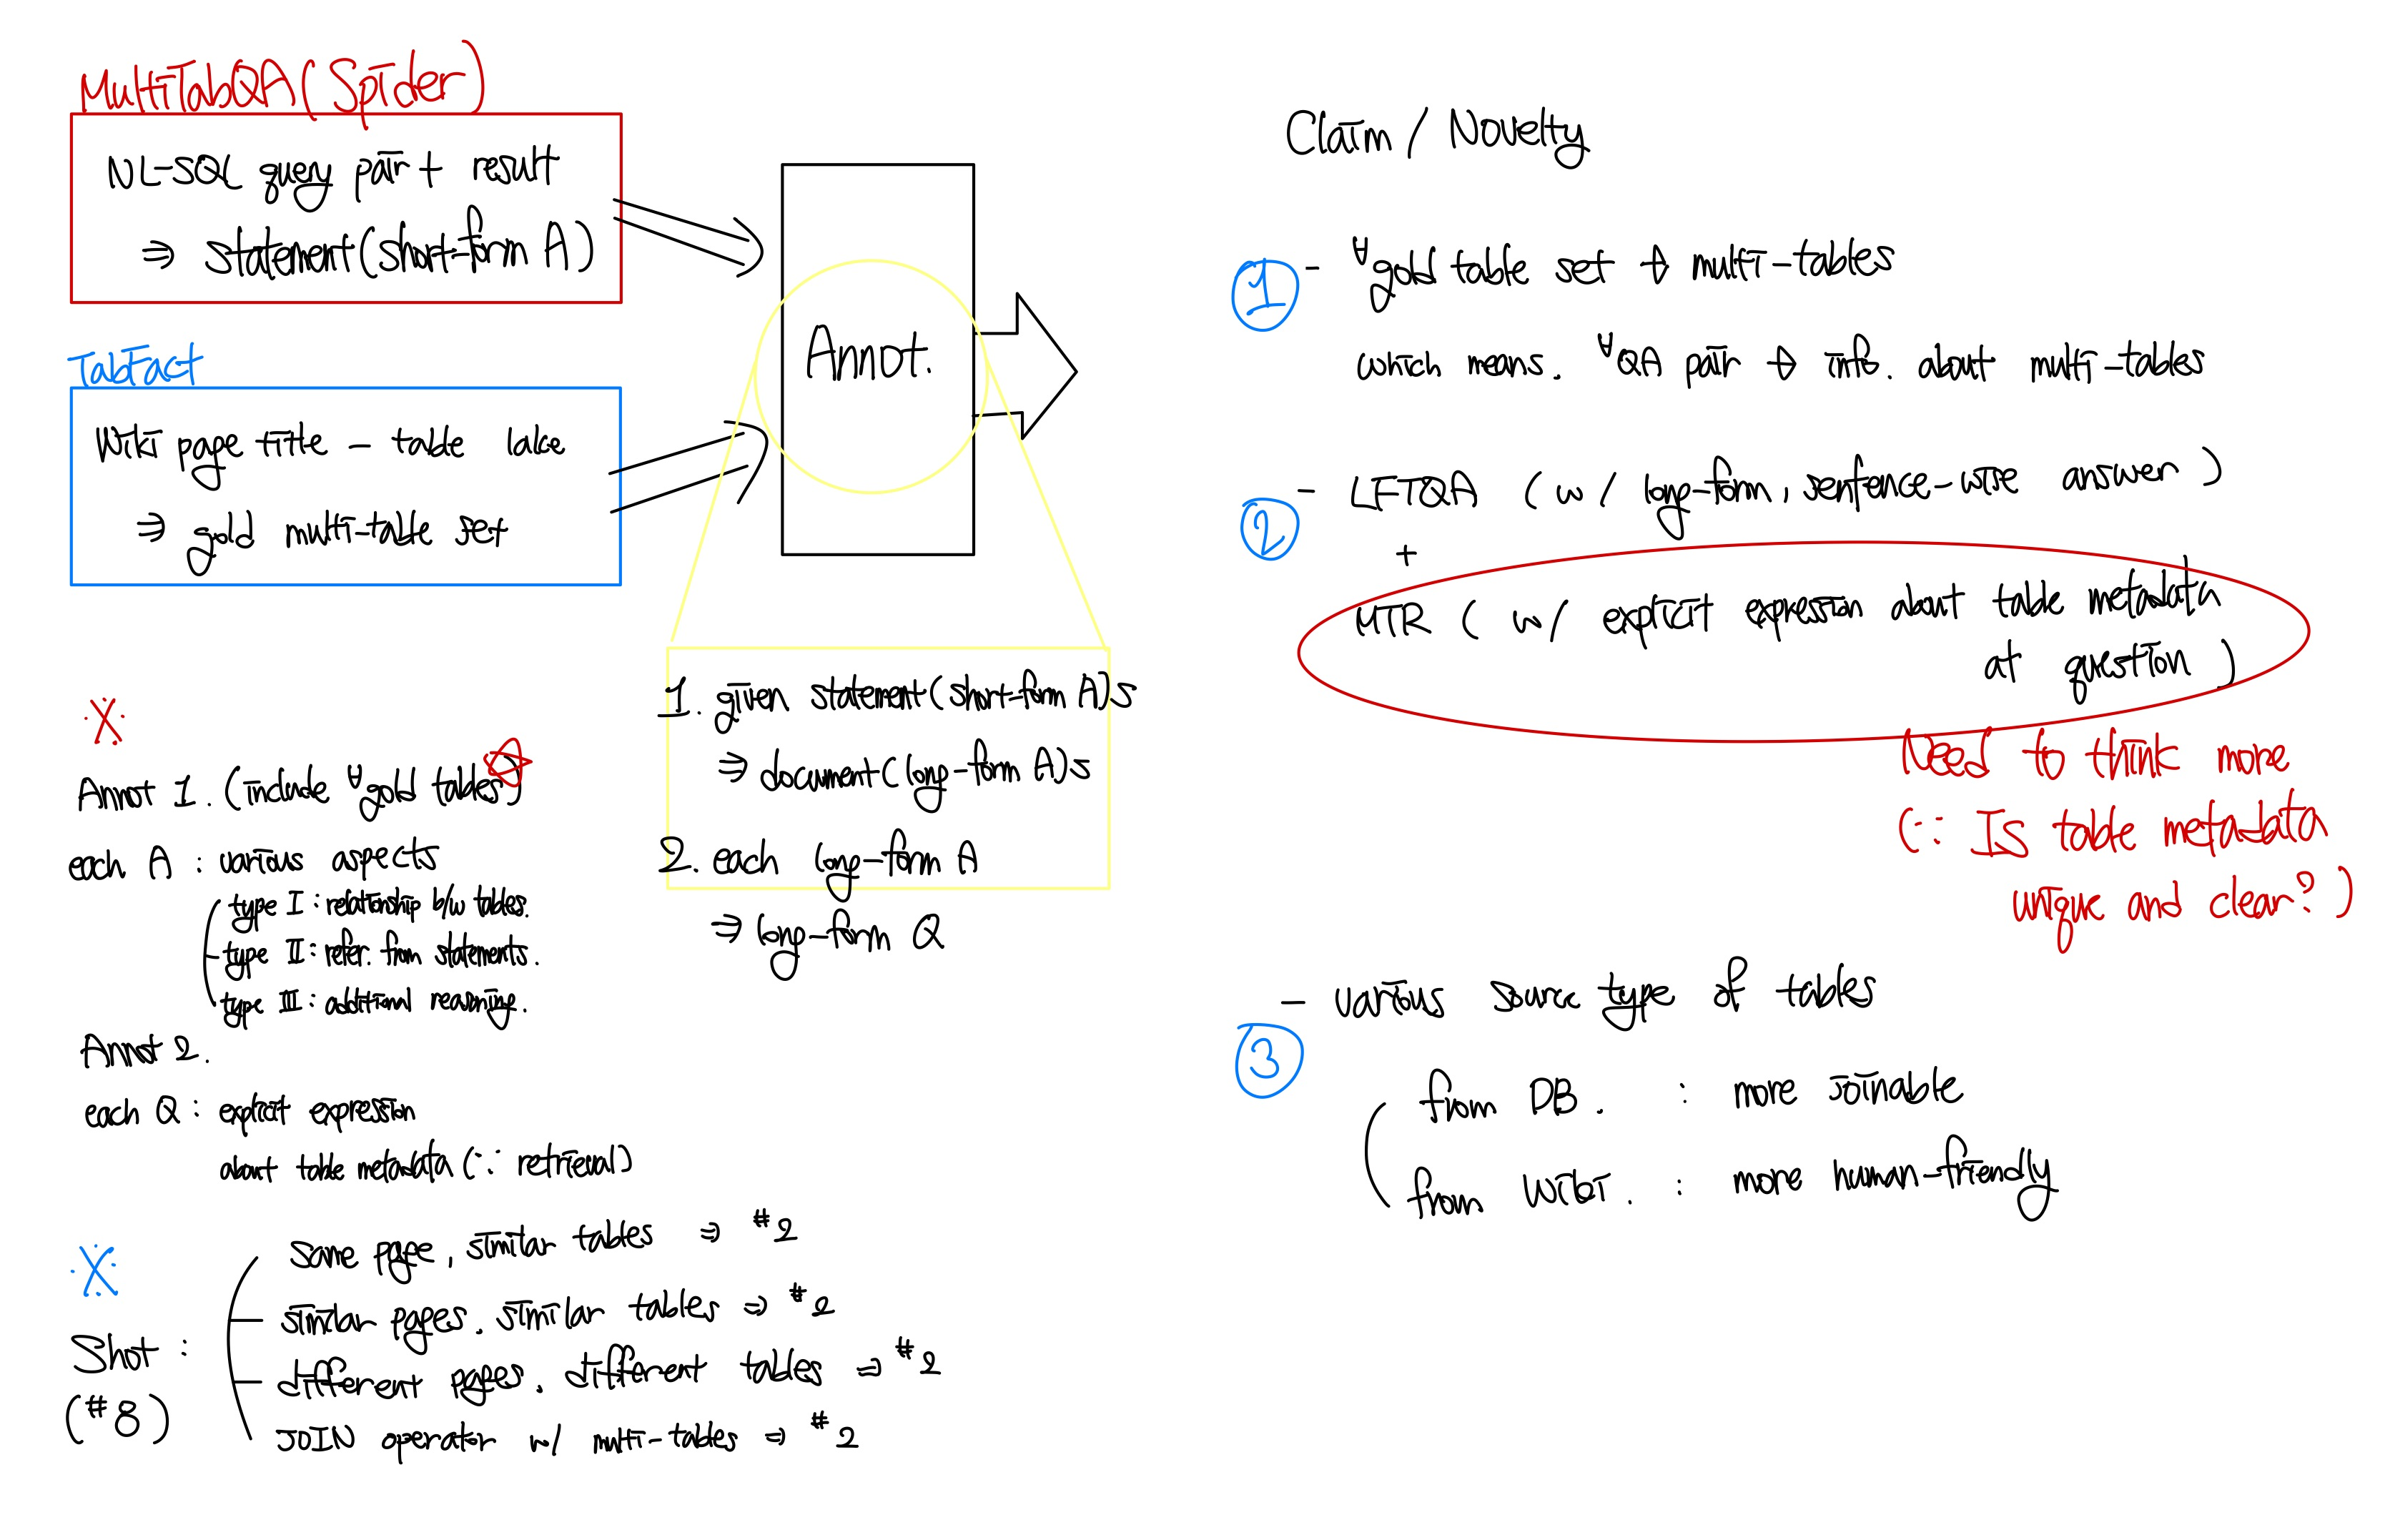 MultiTabQA (Spider)
NL-SQL query pair + result
⇒ statement (short-form A)
TabFact
Wiki page title - table lake
⇒ gold multi-table set
Annot.
1. given statement (short-form A)s
⇒ document (long-form A)s
2. each long-form A
⇒ long-form Q
※
Annot 1. (include ∀gold tables)
each A : various aspects
type I : relationship b/w tables.
type II : refer. from statements.
type III : additional reasoning.
Annot 2.
each Q : explicit expression
about table metadata (∵ retrieval)
※
Shot :
(#8)
same page, similar tables ⇒ #2
similar pages, similar tables ⇒ #2
different pages, different tables ⇒ #2
JOIN operator w/ multi-tables ⇒ #2
Claim / Novelty
① - ∀gold table set → multi-tables
which means. ∀QA pair → info. about multi-tables
② - LFTQA (w/ long-form, sentence-wise answer)
+
MTR (w/ explicit expression about table metadata
at question)
Need to think more
(∵ Is table metadata
unique and clear?)
③ - various source type of tables
from DB. : more joinable
from Wiki. : more human-friendly